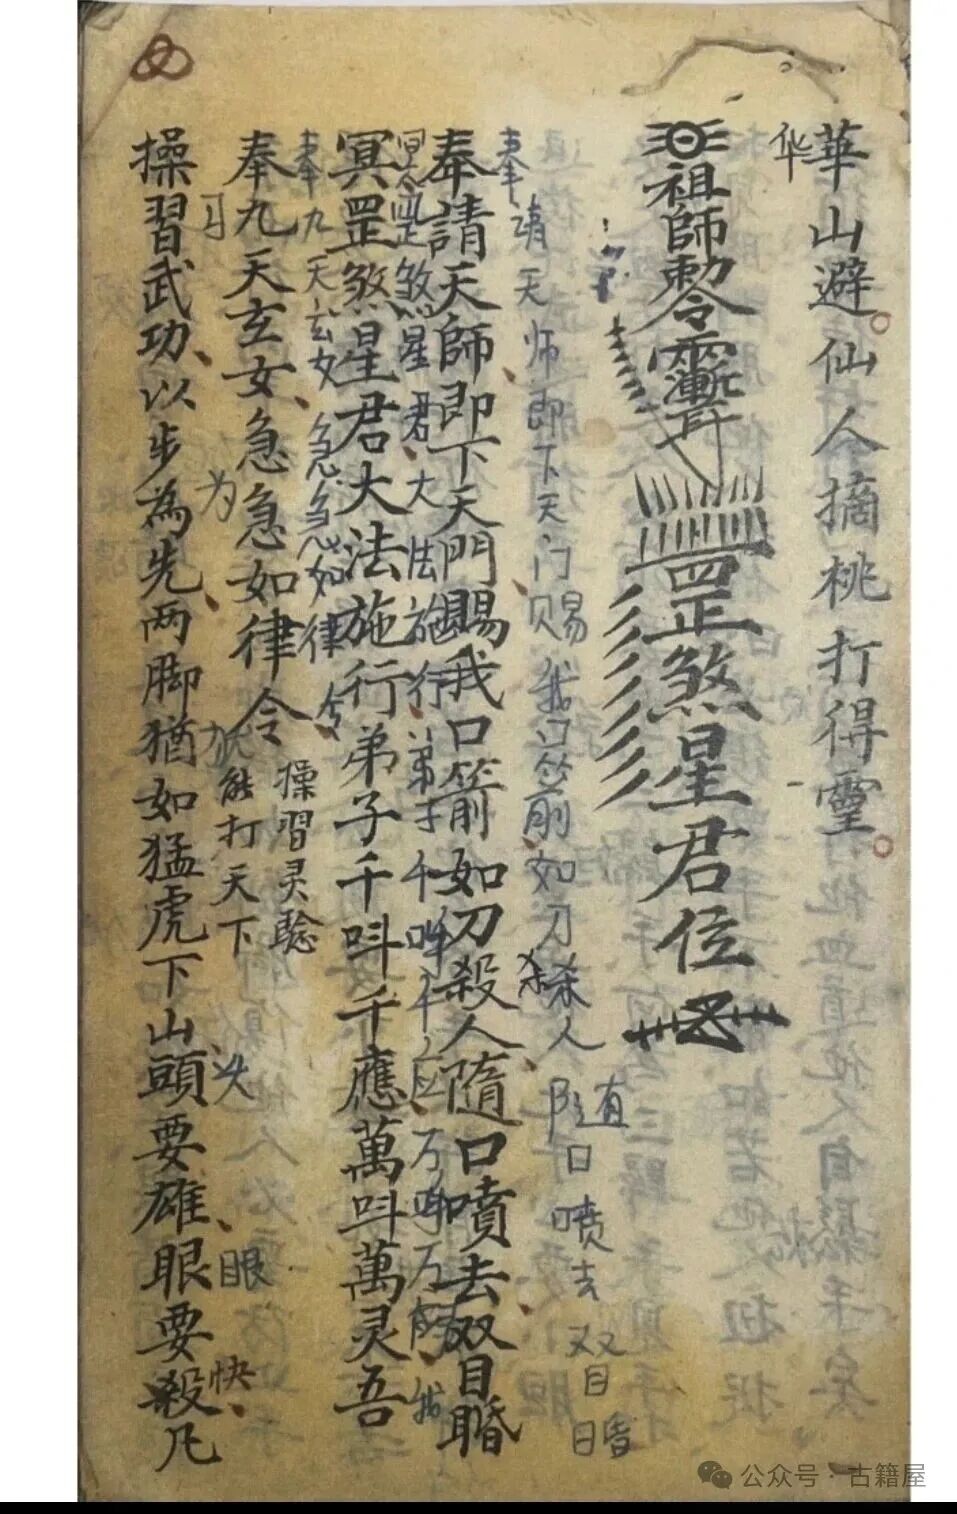 華山避仙人摘桃打得靈
华
祖師勅令
罡煞星君位
奉請天師即下天门赐我口箭如刀杀人
随口喷去双目昏
奉請天師即下天門賜我口箭如刀殺人隨口噴去双目昏
冥罡煞星君大法施行弟子千叫千应万叫万
冥罡煞星君大法施行弟子千呌千應萬呌萬灵吾
奉九天玄女急急如律令
奉九天玄女急急如律令
操習灵聪
能打天下
习
为
头
眼
快
操習武功以步為先两脚猶如猛虎下山頭要雄眼要殺凡
公众号·古籍屋